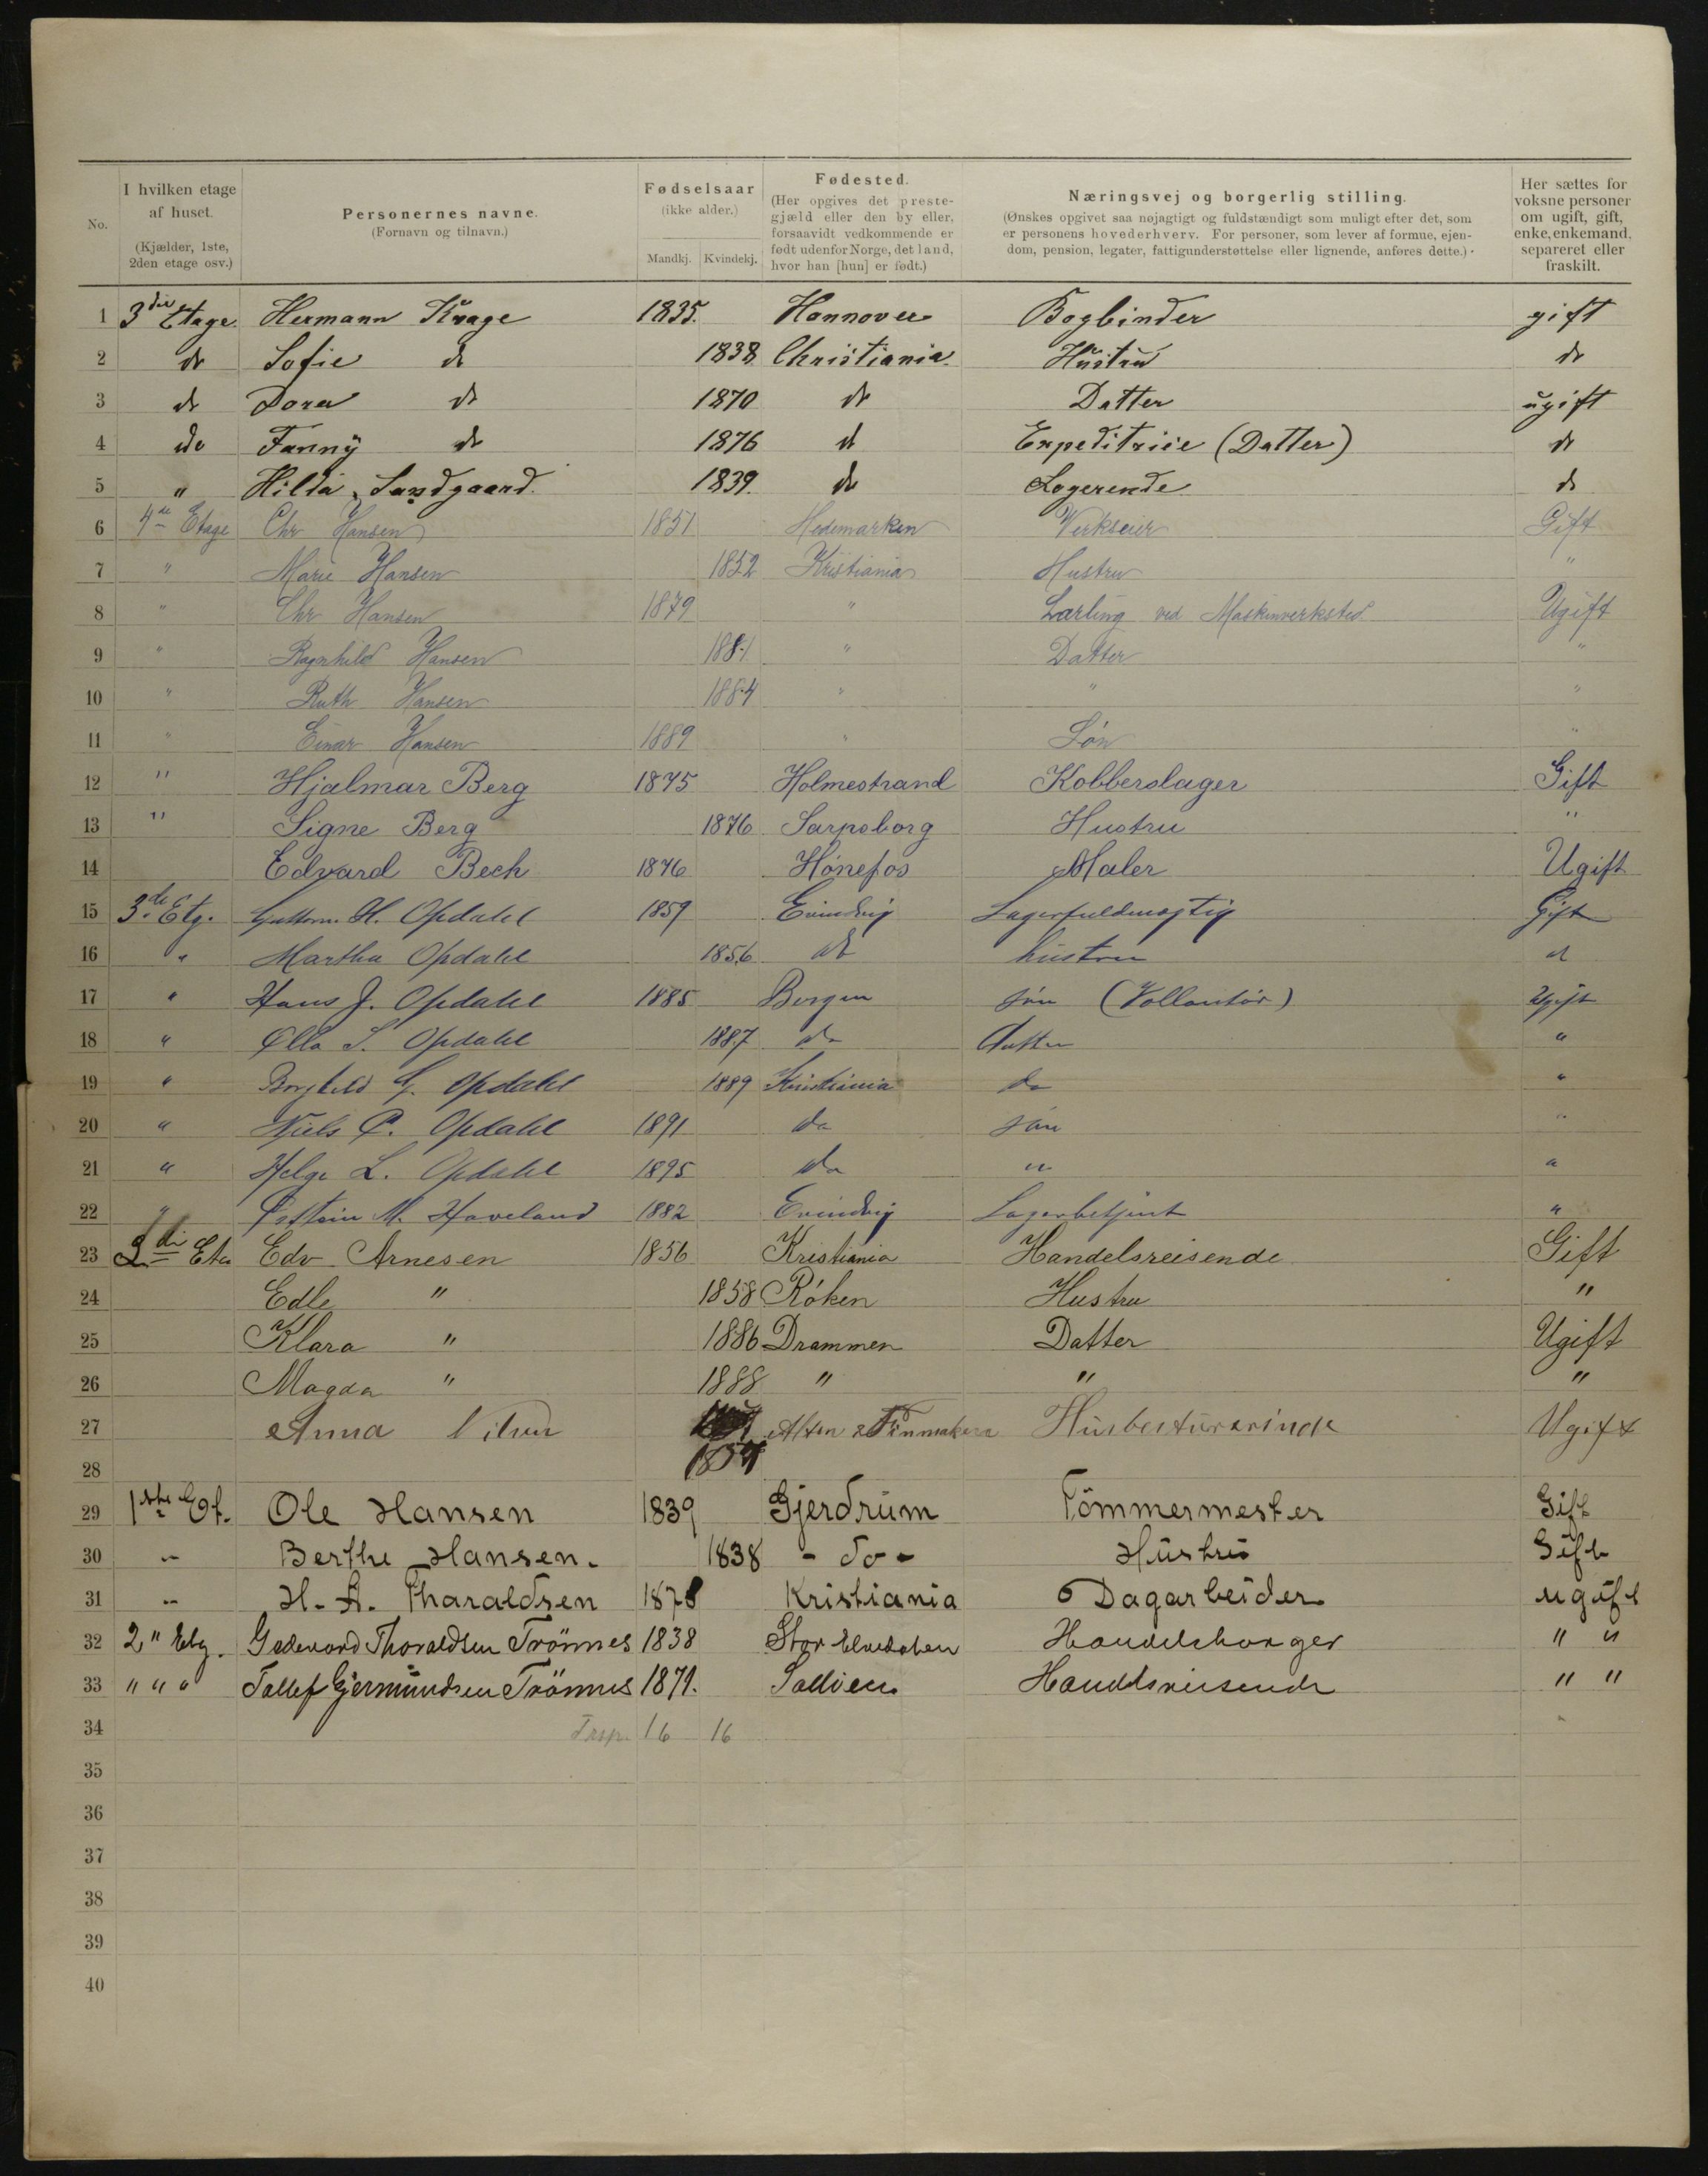 No. I hvilken etage af huset. (Kjælder, 1ste, 2den etage osv.) Personernes navne. (Fornavn og tilnavn.) Fødselsaar (ikke alder.) Mandkj. Kvindekj. Fødested. (Her opgives det prestegjæld eller den by eller, forsaavidt vedkommende er født udenfor Norge, det land, hvor han [hun] er født.) Næringsvej og borgerlig stilling. (Ønskes opgivet saa nøjagtigt og fuldstændigt som muligt efter det, som er personens hovederhverv. For personer, som lever af formue, ejendom, pension, legater, fattigunderstøttelse eller lignende, anføres dette.) Her sættes for voksne personer om ugift, gift, enke, enkemand, separeret eller fraskilt.
1 3die Etage Hermann Krage 1835. Hannover Bogbinder gift
2 do Sofie do 1838 Christiania Hustru do
3 do Dora do 1870 do Datter ugift
4 do Fanny do 1876 do Expeditrice (Datter) do
5 " Hilda Sandgaard 1839. do Logerende do
6 4de Etage Chr Hansen 1851 Hedemarken Verkseier Gift
7 " Marie Hansen 1852 Kristiania Hustru "
8 " Chr Hansen 1879 " Lærling ved Maskinverksted Ugift
9 " Ragnhild Hansen 1881 " Datter "
10 " Ruth Hansen 1884 " " "
11 " Einar Hansen 1889 " Søn "
12 " Hjalmar Berg 1875 Holmestrand Kobberslager Gift
13 " Signe Berg 1876 Sarpsborg Hustru "
14 Edvard Bech 1876 Hønefos Maler Ugift
15 3de Etg. Guttorm H. Opdahl 1859 Evindvig Lagerfuldmægtig Gift
16 " Martha Opdahl 1856 do hustru do
17 " Hans J. Opdahl 1885 Bergen søn (Vollantør) Ugift
18 " Olla S. Opdahl 1887 do datter "
19 " Borghild G. Opdahl 1889 Kristiania do "
20 " Niels C. Opdahl 1891 do søn "
21 " Helge L. Opdahl 1895 do " "
22 " Østein M. Haveland 1882 Evindvig Lagerbetjent "
23 2di Eta Edv Arnesen 1856 Kristiania Handelsreisende Gift
24 Edle " 1858 Røken Hustru "
25 Klara " 1886 Drammen Datter Ugift
26 Magda " 1888 " " "
27 Anna Alten Husbestyrerinde Ugift
28
29 1ste Et. Ole Hansen 1839 Gjerdrum Tömmermester Gift
30 " Berthe Hansen. 1838 - do - Hüstru Gift
31 " H. A. Tharaldsen 1878 Kristiania Dagarbeider ugift
32 2" Etg. Thoraldsen Trönnes 1838 Stor Elvedalen Handelsborger " "
33 " " " Tallef Gjermundsen Trönnes 1871. Handelsreisende " "
34 16 16
35
36
37
38
39
40